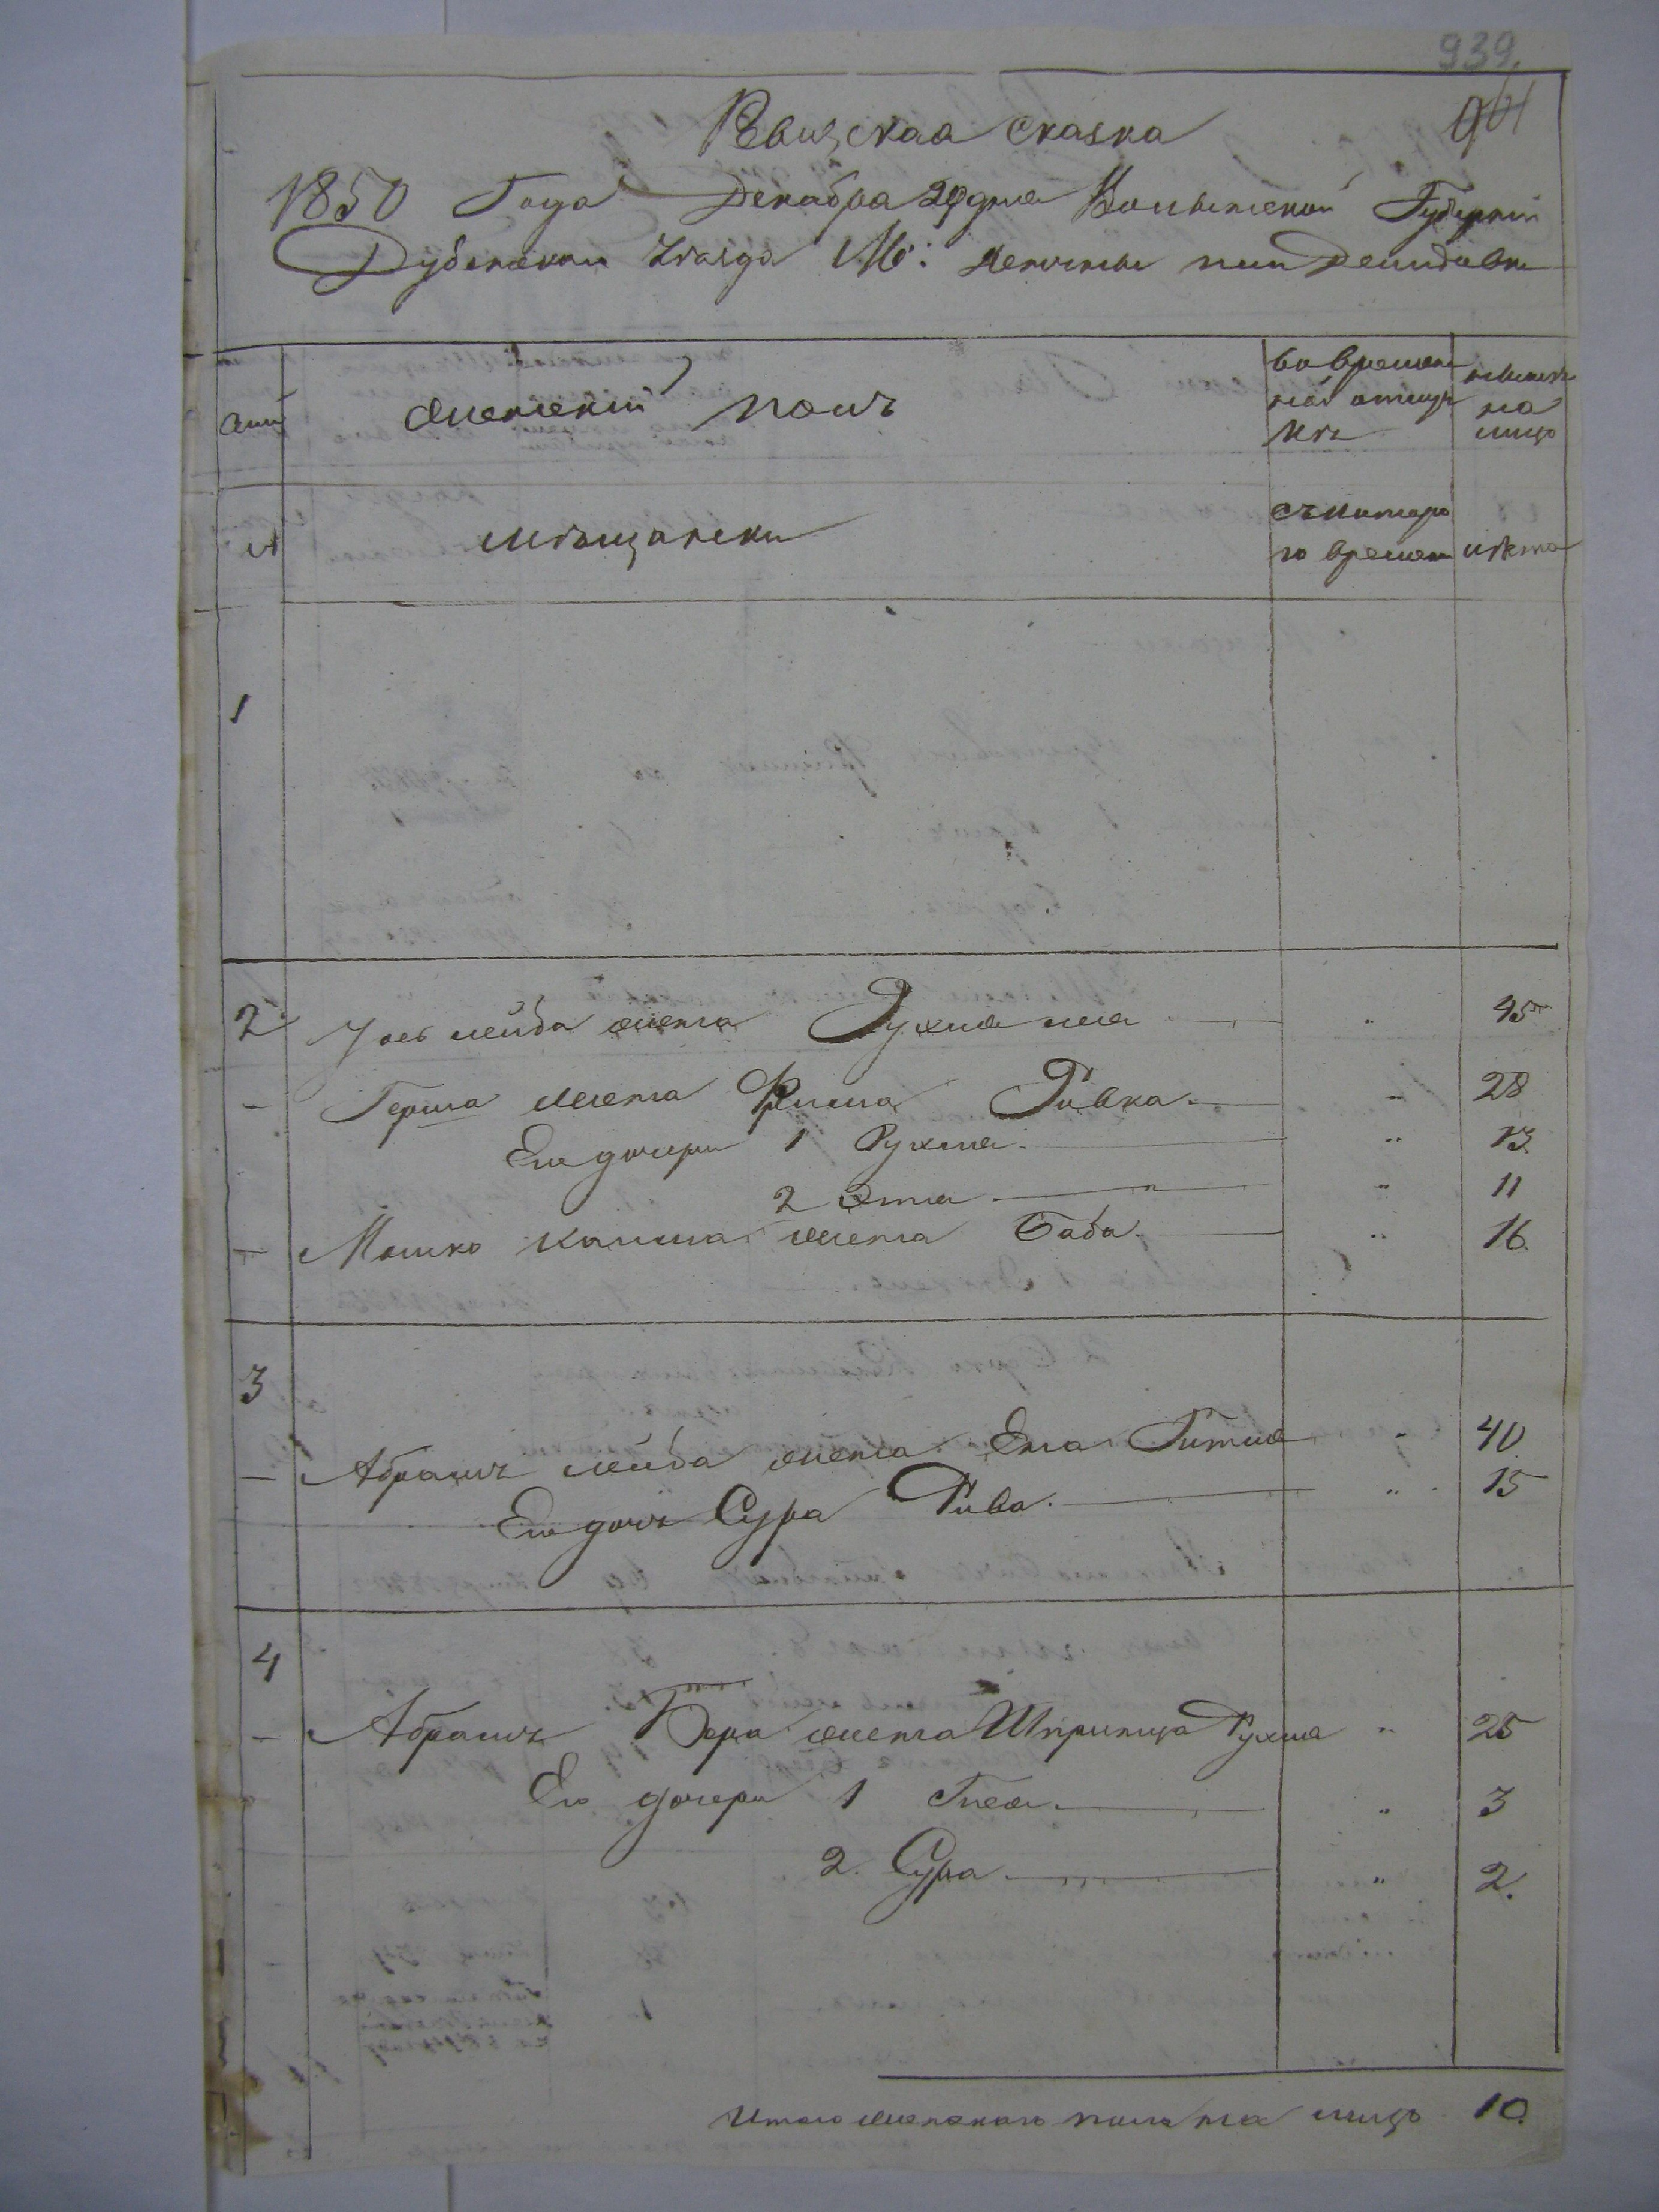 939.
Ревизская сказка
1850 Года Декабра 29 дня Волынской Губерніи
Дубенскаи уѣзда М: деминдовки
женскій полъ
во времен
ной отлуч
кѣ
на
лицо
мѣщански
съ которо
го времени
лѣта
1
2 Іось лейба жена Рухля лея " 45
Герша жена Фрима Ривка " 28
Его дочери 1 Рухля " 13
2 Этля " 11
Мошко жена Баба " 16
3
Абрамъ лейба жена Ена Гитля " 40
Его дочь Сура Рива " 15
4
Абрамъ Бера жена Шпринца Рухля " 25
Его дочери 1 Гнеся " 3
2. Сура " 2.
Итого женскаго пола на лицо 10.